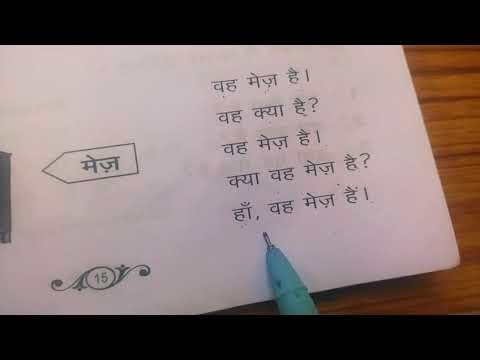 वह मेज़ है।
वह क्या है?
वह मेज़ है।
मेज़
क्या वह मेज़ है?
हाँ, वह मेज़ है।
15